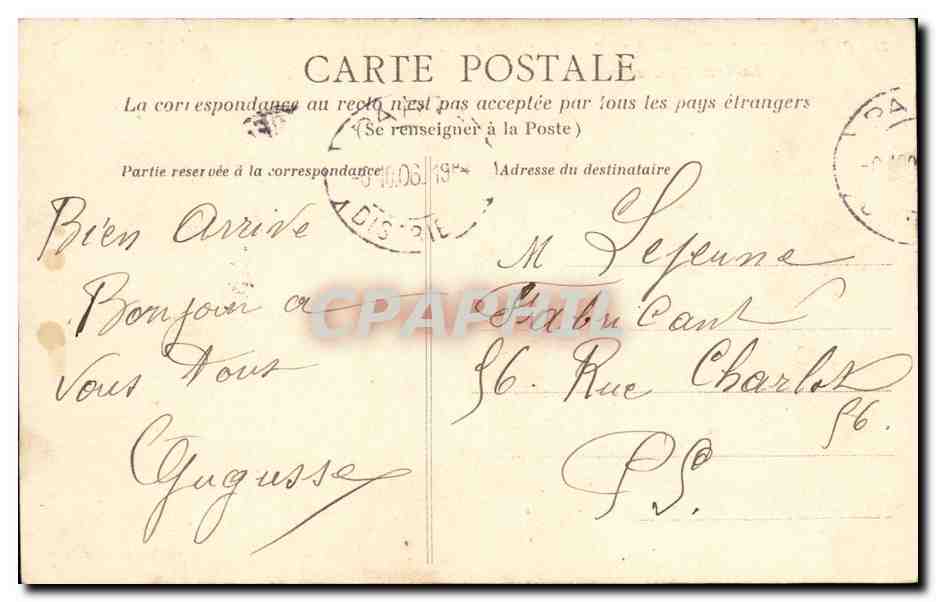 CARTE POSTALE
La correspondance au recto n'est pas acceptée par tous les pays étrangers
(Se renseigner à la Poste)
Partie reservée à la correspondance
Adresse du destinataire
Bien Arrive
Bonjour a
vous tous
Gugusse
M Lejeune
Fabricant
56. Rue Charlot
56.
PS.
PA
06
DISTRIB
CPAPHIL